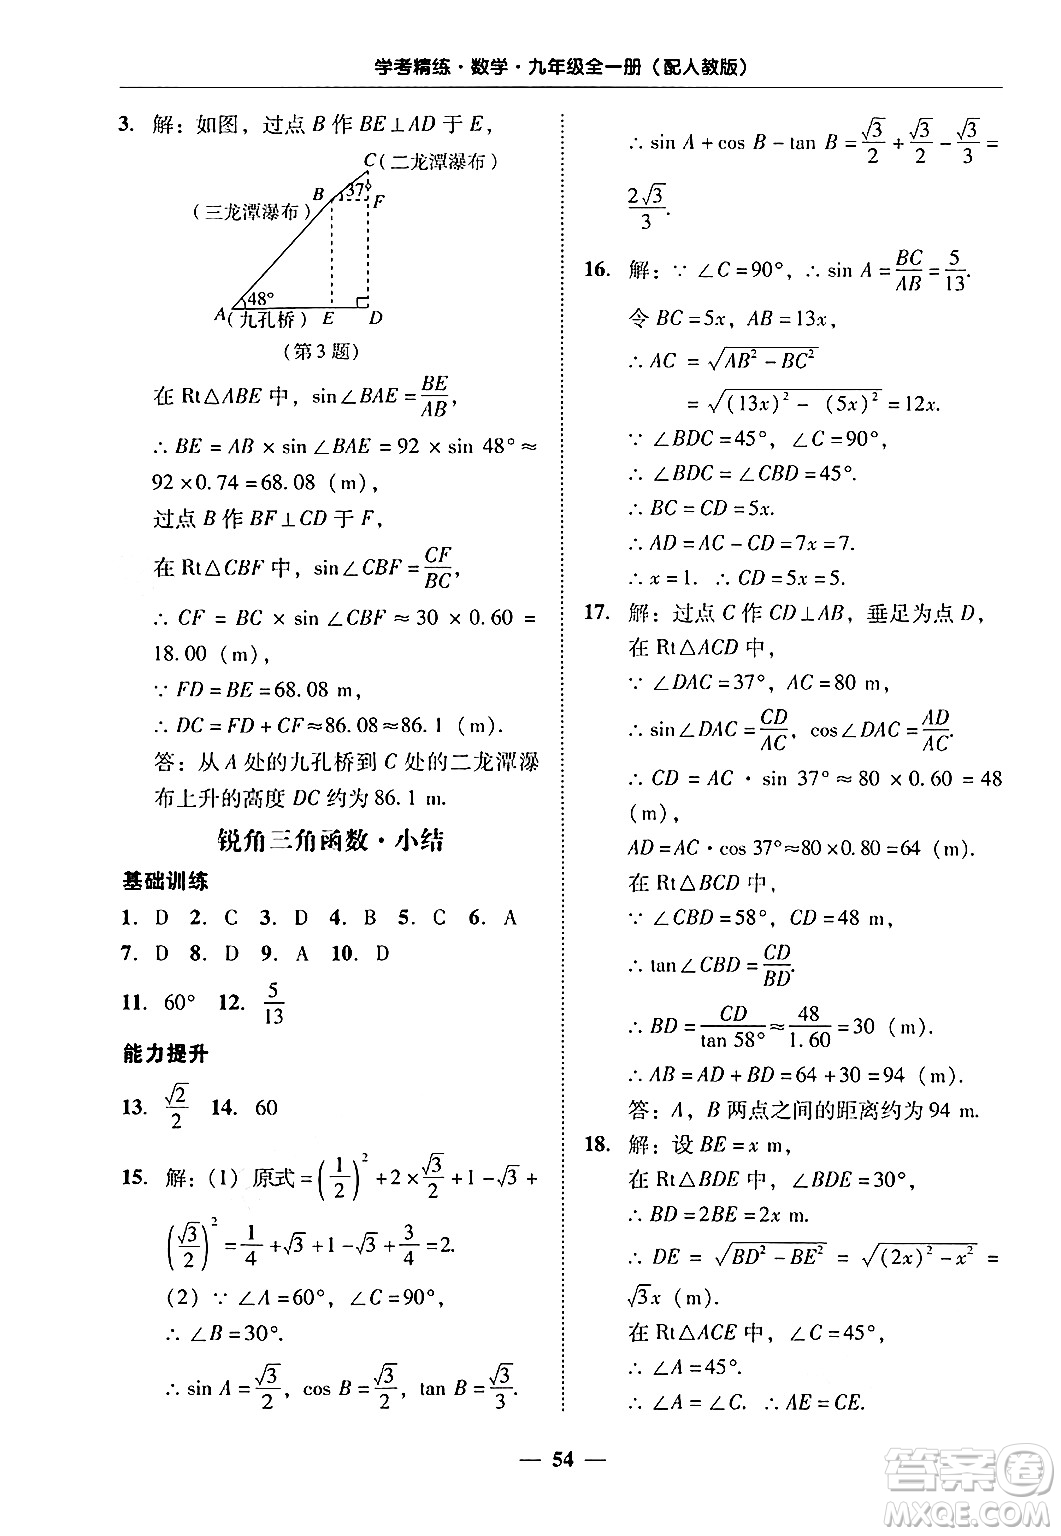 学考精练·数学·九年级全一册（配人教版）
3. 解：如图，过点 B 作 BE⊥AD 于 E，
C(二龙潭瀑布)
B 37° F
(三龙潭瀑布)
48°
A (九孔桥) E D
(第 3 题)
在 Rt△ABE 中，sin∠BAE=BE/AB,
∴ BE = AB × sin ∠BAE = 92 × sin 48°≈
92 ×0.74 =68.08 (m),
过点 B 作 BF⊥CD 于 F，
在 Rt△CBF 中，sin∠CBF=CF/BC,
∴ CF = BC × sin ∠CBF ≈ 30 × 0.60 =
18.00 (m),
∵ FD=BE=68.08 m,
∴ DC=FD+CF≈86.08≈86.1 (m).
答：从 A 处的九孔桥到 C 处的二龙潭瀑
布上升的高度 DC 约为 86.1 m.
锐角三角函数·小结
基础训练
1. D 2. C 3. D 4. B 5. C 6. A
7. D 8. D 9. A 10. D
11. 60° 12. 5/13
能力提升
13. √2/2 14. 60
15. 解：(1) 原式=(1/2)²+2×√3/2+1-√3+
(√3/2)²=1/4+√3+1-√3+3/4=2.
(2) ∵ ∠A=60°, ∠C=90°,
∴ ∠B=30°.
∴ sin A=√3/2, cos B=√3/2, tan B=√3/3.
∴ sin A+cos B-tan B=√3/2+√3/2-√3/3=
2√3/3.
16. 解：∵ ∠C=90°, ∴ sin A=BC/AB=5/13.
令 BC=5x, AB=13x,
∴ AC = √(AB²-BC²)
= √((13x)²-(5x)²)=12x.
∵ ∠BDC=45°, ∠C=90°,
∴ ∠BDC=∠CBD=45°.
∴ BC=CD=5x.
∴ AD=AC-CD=7x=7.
∴ x=1. ∴ CD=5x=5.
17. 解：过点 C 作 CD⊥AB，垂足为点 D，
在 Rt△ACD 中，
∵ ∠DAC=37°, AC=80 m,
∴ sin∠DAC=CD/AC, cos∠DAC=AD/AC.
∴ CD=AC·sin 37°≈80×0.60=48
(m),
AD=AC·cos 37°≈80×0.80=64 (m).
在 Rt△BCD 中，
∵ ∠CBD=58°, CD=48 m,
∴ tan∠CBD=CD/BD.
∴ BD=CD/tan 58°≈48/1.60=30 (m).
∴ AB=AD+BD=64+30=94 (m).
答：A，B 两点之间的距离约为 94 m.
18. 解：设 BE=x m,
在 Rt△BDE 中，∠BDE=30°,
∴ BD=2BE=2x m.
∴ DE = √(BD²-BE²) = √((2x)²-x²) =
√3x (m).
在 Rt△ACE 中，∠C=45°,
∴ ∠A=45°.
∴ ∠A=∠C. ∴ AE=CE.
— 54 —
答案圈
MXQE.COM